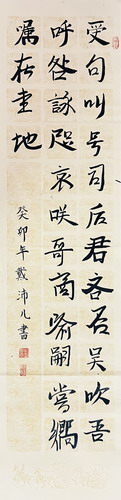 受句叫号司后君吝石吴吹吾
呼咎詠咫哀咲哥商喻嗣嘗嚮
嘱在圭地
癸卯年戴沛凡書